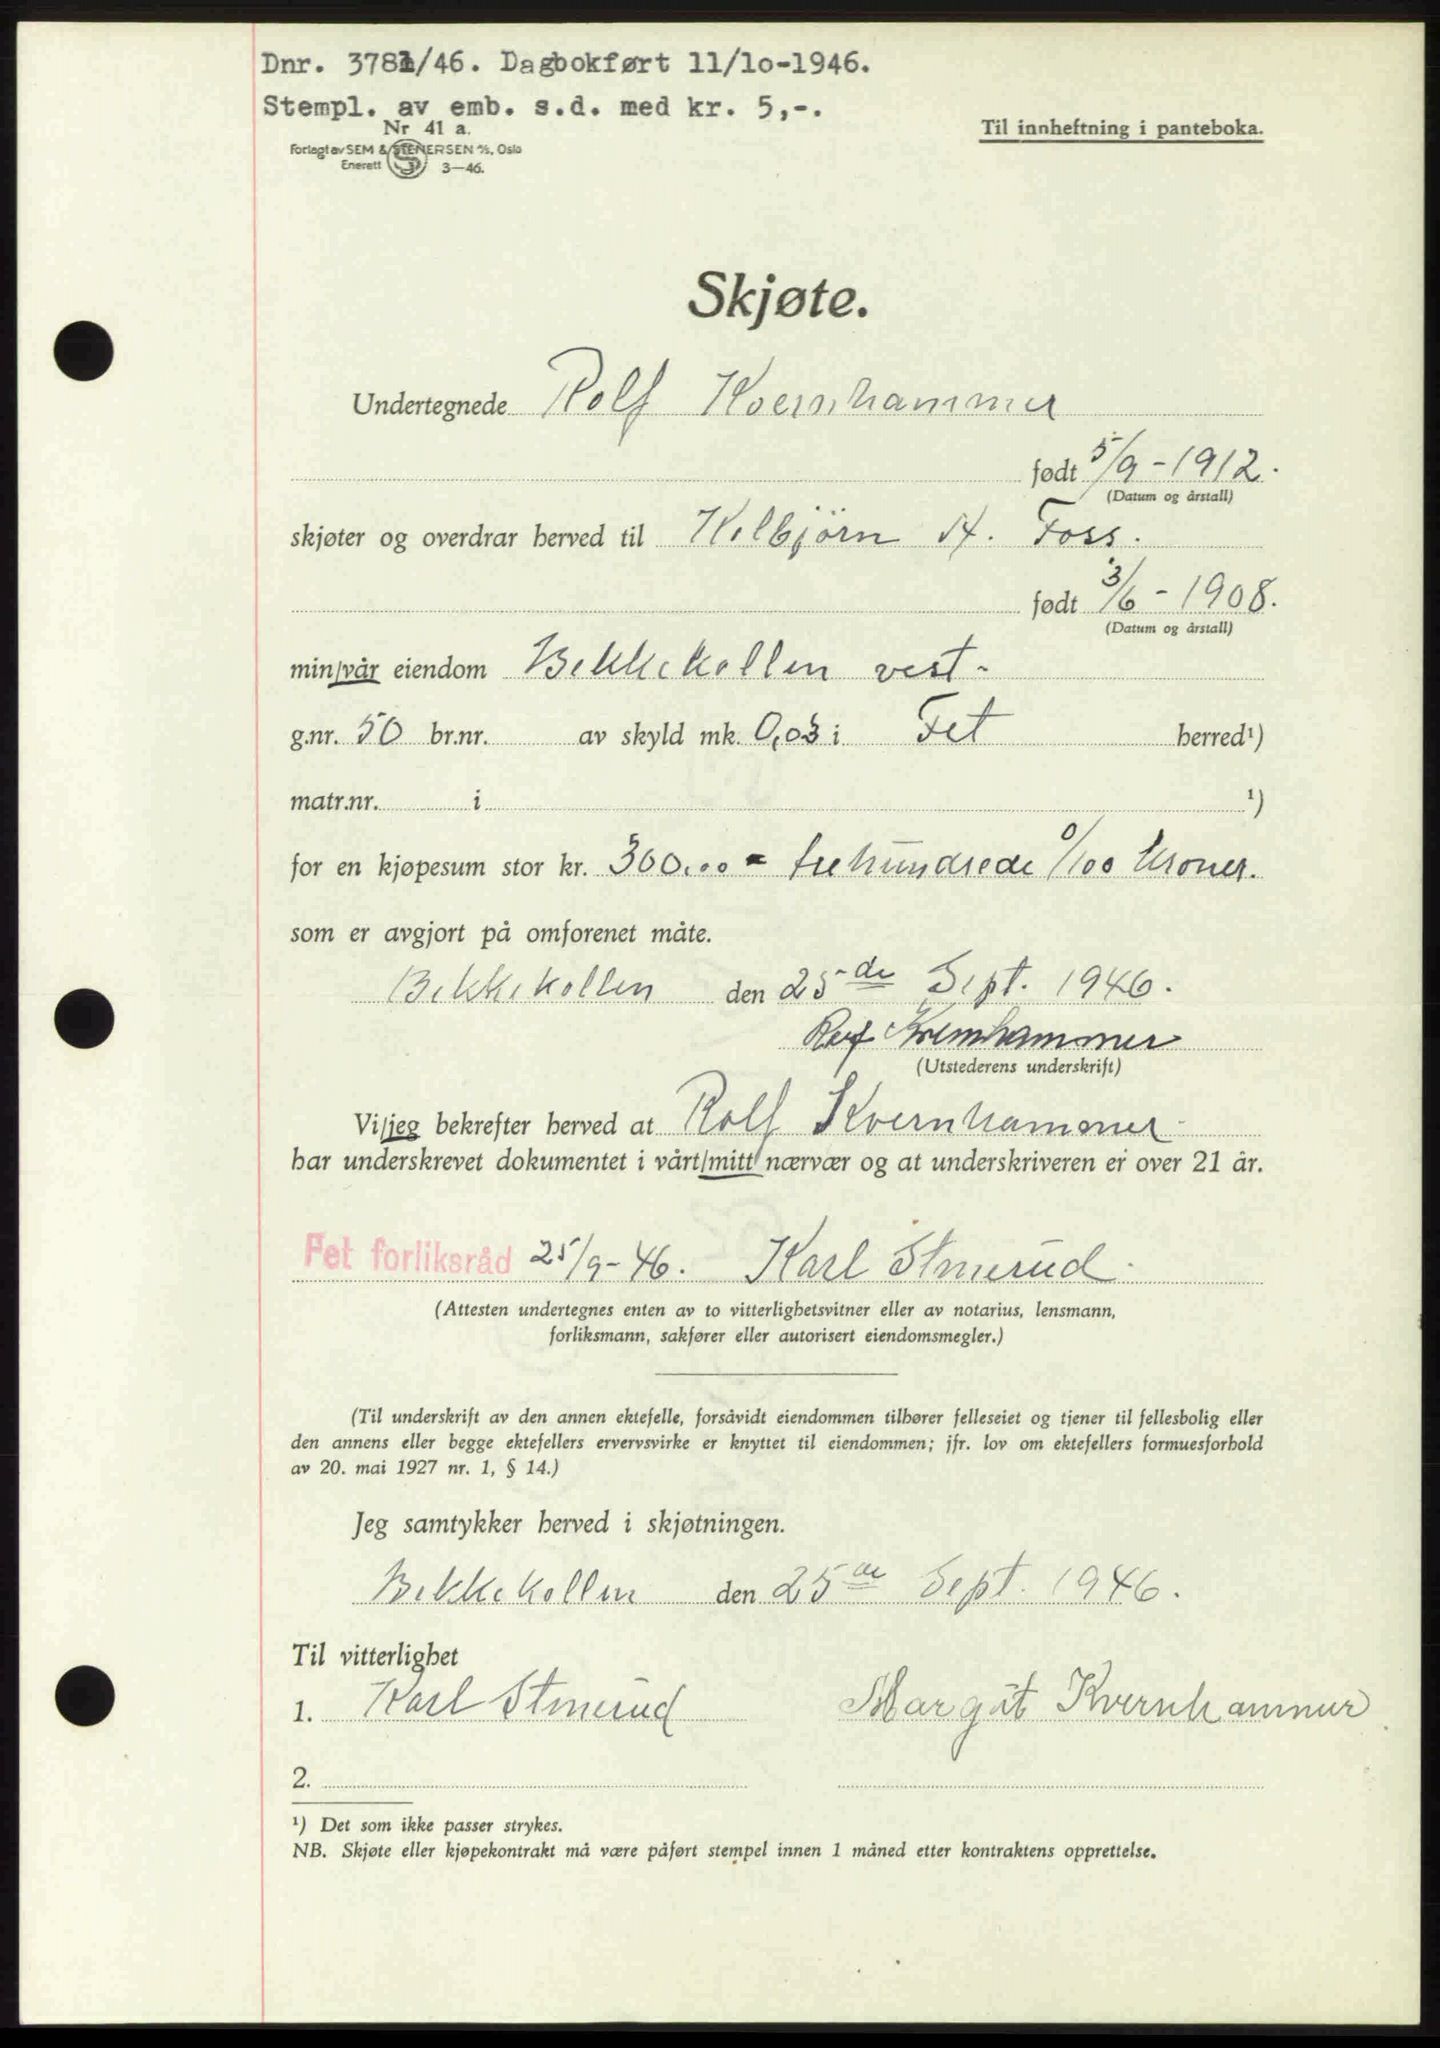 Dnr. 3781/46. Dagbokført 11/10-1946.
Stempl. av emb. s.d. med kr. 5,-.
Nr 41 a.
Forlagt av SEM & STENERSEN A/S, Oslo
Enerett 3—46.
Til innheftning i panteboka.
Skjøte.
Undertegnede Rolf Kvernhammer
født 5/9 - 1912.
(Datum og årstall)
skjøter og overdrar herved til Kolbjörn A. Foss.
født 3/6 - 1908.
(Datum og årstall)
min/vår eiendom Bekkekollen vest-
g.nr. 50 br.nr. av skyld mk. 0,03 i Fet herred¹)
matr.nr. i ¹)
for en kjøpesum stor kr. 300.00 - trehundrede 0/100 kroner.
som er avgjort på omforenet måte.
Bekkekollen den 25de Sept. 1946.
Rolf Kvernhammer
(Utstederens underskrift)
Vi/jeg bekrefter herved at Rolf Kvernhammer
har underskrevet dokumentet i vårt/mitt nærvær og at underskriveren er over 21 år.
Fet forliksråd 25/9-46. Karl
(Attesten undertegnes enten av to vitterlighetsvitner eller av notarius, lensmann,
forliksmann, sakfører eller autorisert eiendomsmegler.)
(Til underskrift av den annen ektefelle, forsåvidt eiendommen tilhører felleseiet og tjener til fellesbolig eller
den annens eller begge ektefellers ervervsvirke er knyttet til eiendommen; jfr. lov om ektefellers formuesforhold
av 20. mai 1927 nr. 1, § 14.)
Jeg samtykker herved i skjøtningen.
Bekkekollen den 25de Sept. 1946.
Til vitterlighet
1. Karl Margit Kvernhammer
2.
¹) Det som ikke passer strykes.
NB. Skjøte eller kjøpekontrakt må være påført stempel innen 1 måned etter kontraktens opprettelse.